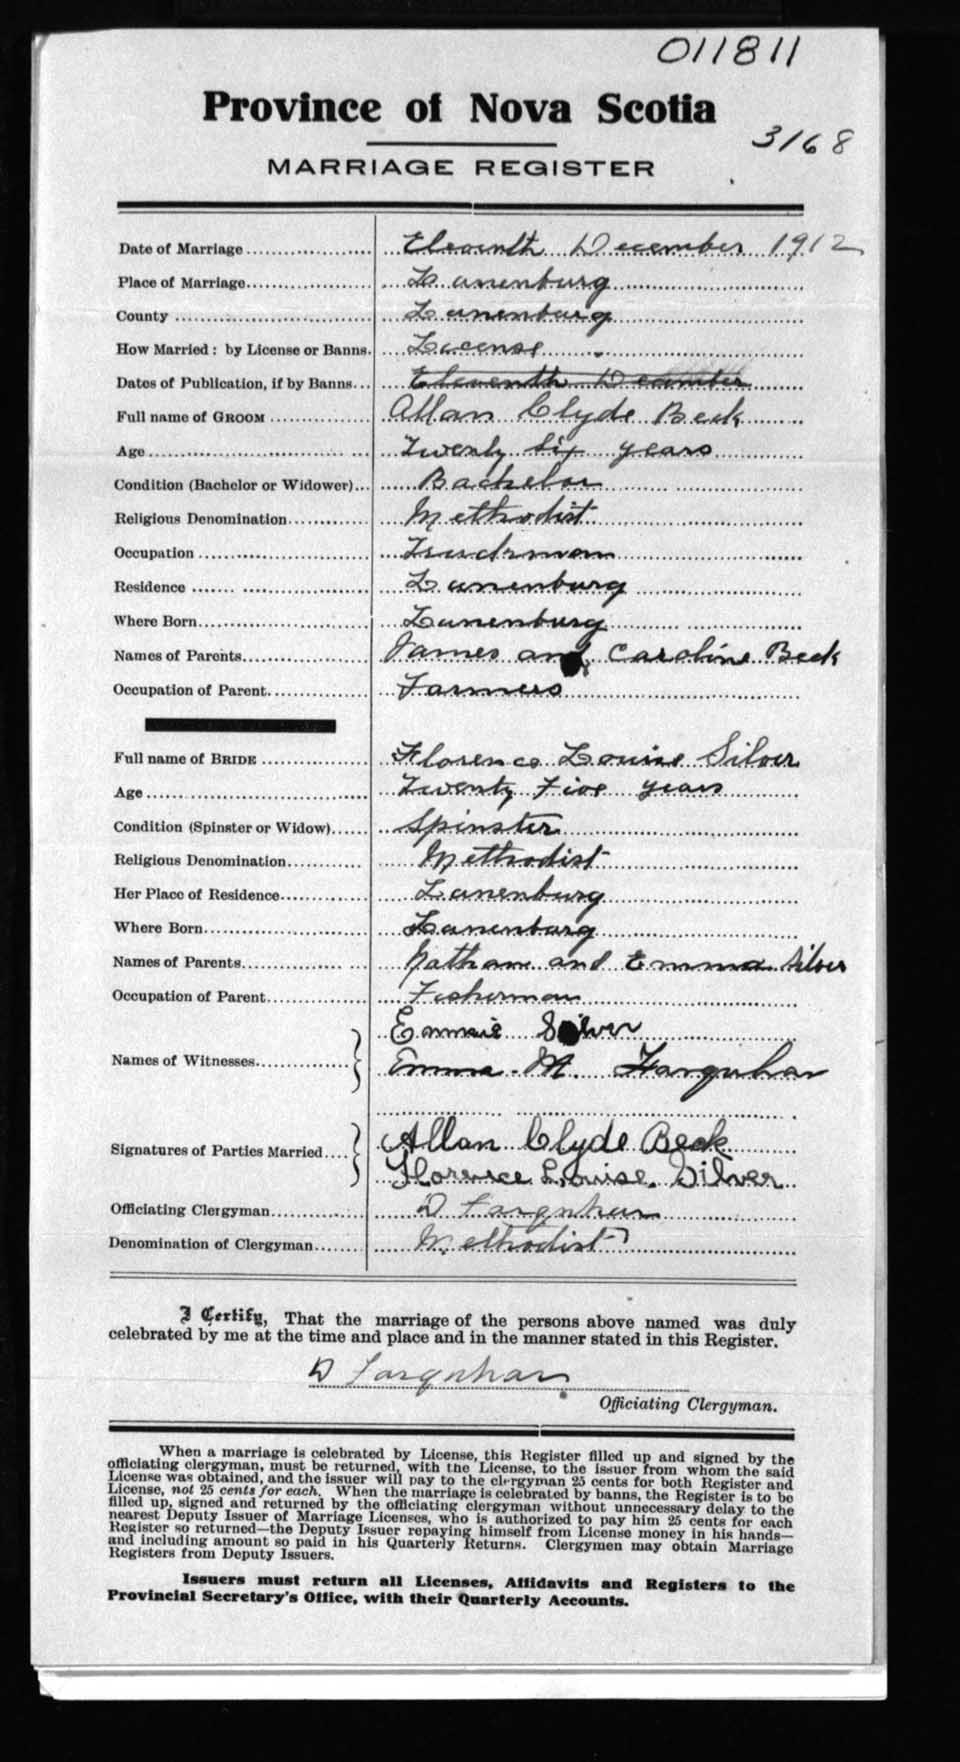 011811
Province of Nova Scotia
3168
MARRIAGE REGISTER
Date of Marriage Eleventh December 1912
Place of Marriage Lunenburg
County Lunenburg
How Married: by License or Banns. License
Dates of Publication, if by Banns Eleventh December
Full name of GROOM Allan Clyde Beck
Age Twenty six years
Condition (Bachelor or Widower) Bachelor
Religious Denomination Methodist
Occupation
Residence Lunenburg
Where Born Lunenburg
Names of Parents James and Caroline Beck
Occupation of Parent Farmers
Full name of BRIDE Florence Louise Silver
Age Twenty Five years
Condition (Spinster or Widow) Spinster
Religious Denomination Methodist
Her Place of Residence Lunenburg
Where Born Lunenburg
Names of Parents Nathan and Emma Silver
Occupation of Parent Fisherman
Silver
Names of Witnesses Emma M. Farquhar
Signatures of Parties Married Allan Clyde Beck
Florence Louise Silver
Officiating Clergyman D Farquhar
Denomination of Clergyman Methodist
I Certify, That the marriage of the persons above named was duly
celebrated by me at the time and place and in the manner stated in this Register.
D Farquhar
Officiating Clergyman.
When a marriage is celebrated by License, this Register filled up and signed by the
officiating clergyman, must be returned, with the License, to the issuer from whom the said
License was obtained, and the issuer will pay to the clergyman 25 cents for both Register and
License, not 25 cents for each. When the marriage is celebrated by banns, the Register is to be
filled up, signed and returned by the officiating clergyman without unnecessary delay to the
nearest Deputy Issuer of Marriage Licenses, who is authorized to pay him 25 cents for each
Register so returned—the Deputy Issuer repaying himself from License money in his hands—
and including amount so paid in his Quarterly Returns. Clergymen may obtain Marriage
Registers from Deputy Issuers.
Issuers must return all Licenses, Affidavits and Registers to the
Provincial Secretary's Office, with their Quarterly Accounts.